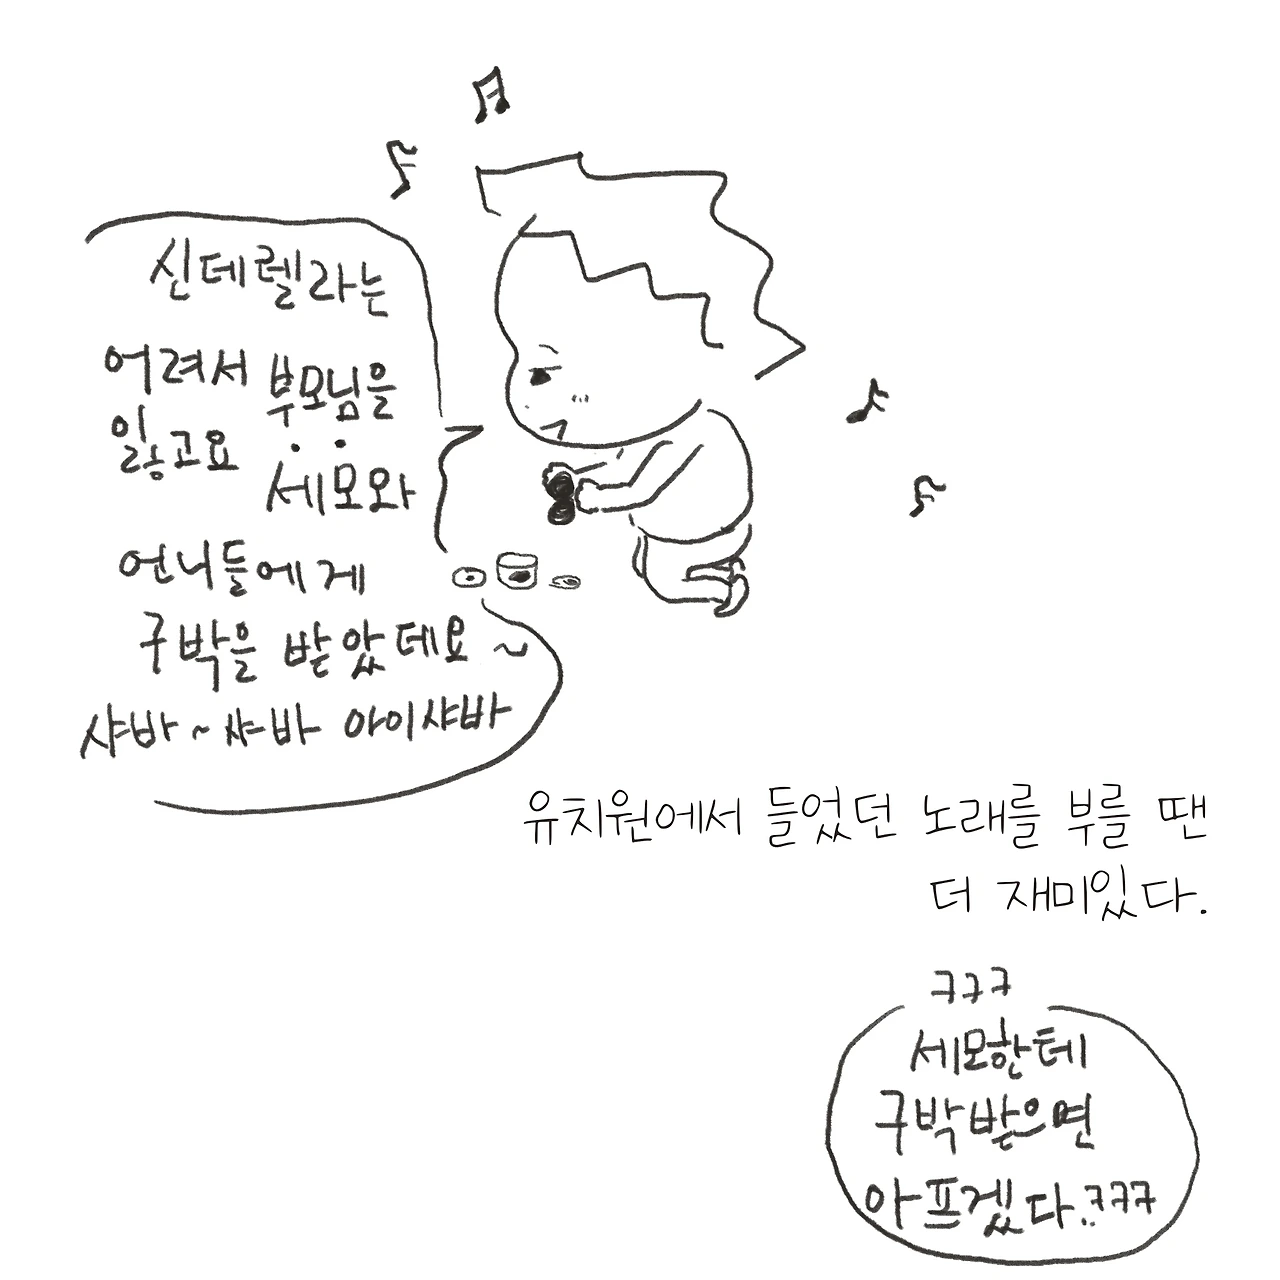 신데렐라는
어려서 부모님을
잃고요
세모와
언니들에게
구박을 받았데요~
샤바~샤바 아이샤바
유치원에서 들었던 노래를 부를 땐
더 재미있다.
ㅋㅋㅋ
세모한테
구박받으면
아프겠다..ㅋㅋㅋ